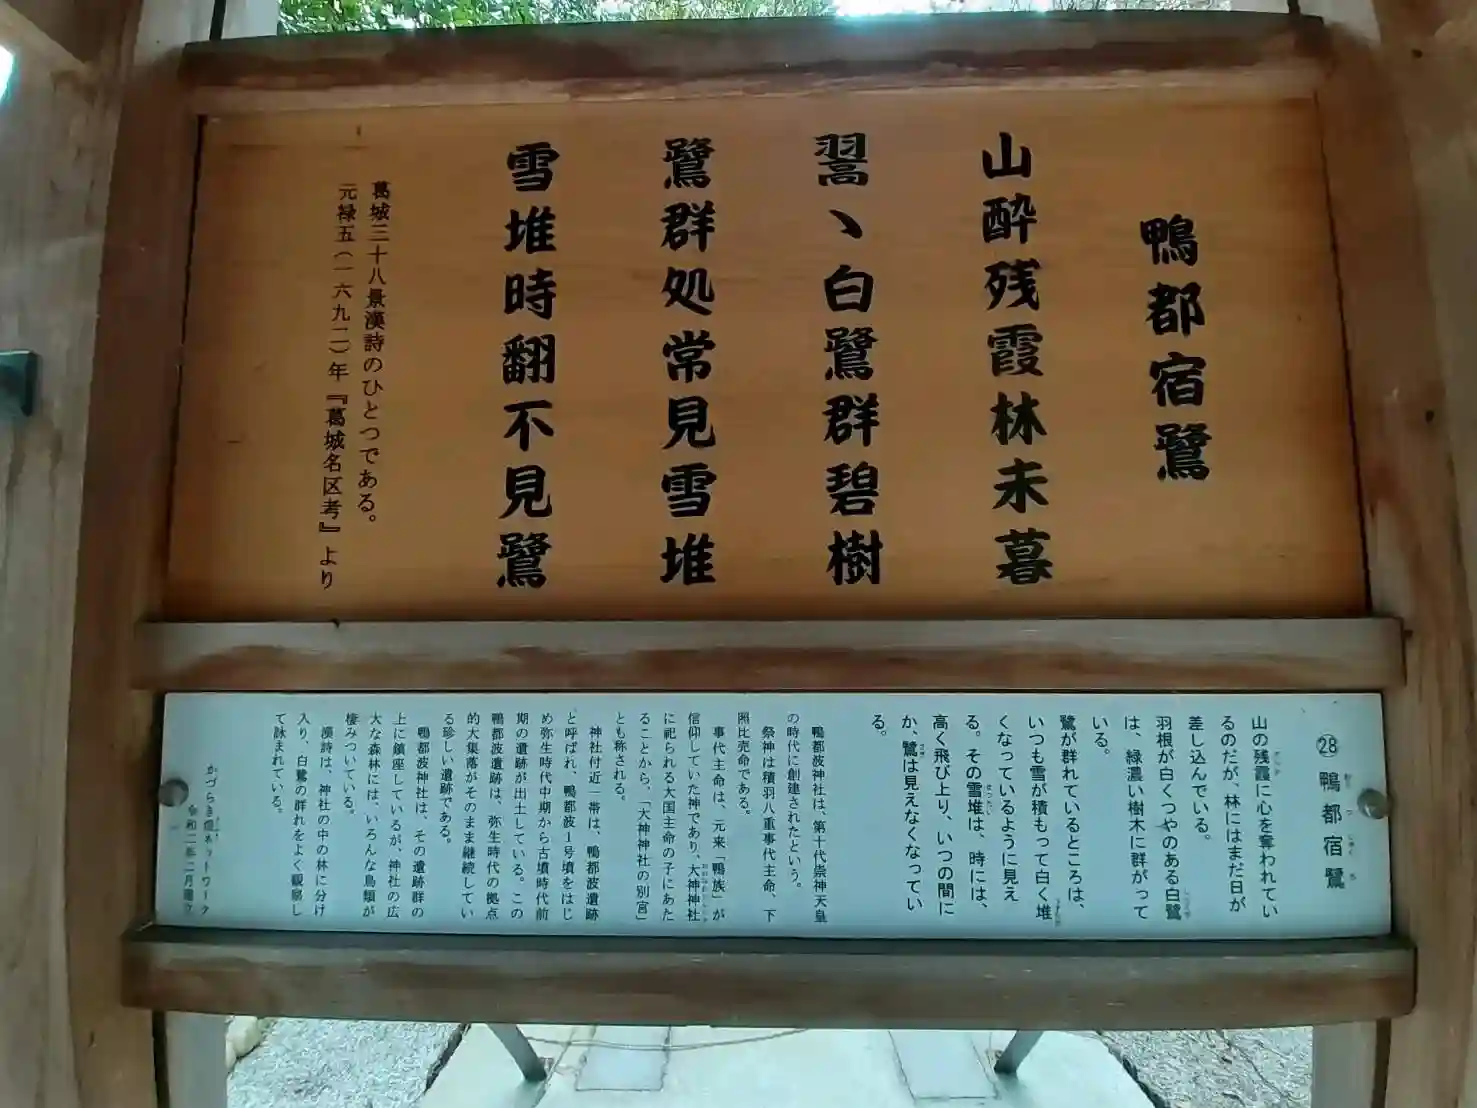 鴨都宿鷺
山酔残霞林未暮
翯丶白鷺群碧樹
鷺群処常見雪堆
雪堆時翻不見鷺
葛城三十八景漢詩のひとつである。
元禄五(一六九二)年『葛城名区考』より
㉘鴨都宿鷺
山の残霞に心を奪われてい
るのだが、林にはまだ日が
差し込んでいる。
羽根が白くつやのある白鷺
は、緑濃い樹木に群がって
いる。
鷺が群れているところは、
いつも雪が積もって白く堆
くなっているように見え
る。その雪堆は、時には、
高く飛び上り、いつの間に
か、鷺は見えなくなってい
る。
鴨都波神社は、第十代崇神天皇
の時代に創建されたという。
祭神は積羽八重事代主命、下
照比売命である。
事代主命は、元来「鴨族」が
信仰していた神であり、大神神社
に祀られる大国主命の子にあた
ることから、「大神神社の別宮」
とも称される。
神社付近一帯は、鴨都波遺跡
と呼ばれ、鴨都波1号墳をはじ
め弥生時代中期から古墳時代前
期の遺跡が出土している。この
鴨都波遺跡は、弥生時代の拠点
的大集落がそのまま継続してい
る珍しい遺跡である。
鴨都波神社は、その遺跡群の
上に鎮座しているが、神社の広
大な森林には、いろんな鳥類が
棲みついている。
漢詩は、神社の中の林に分け
入り、白鷺の群れをよく観察し
て詠まれている。
かづらき煌ネットワーク
令和二年二月建立